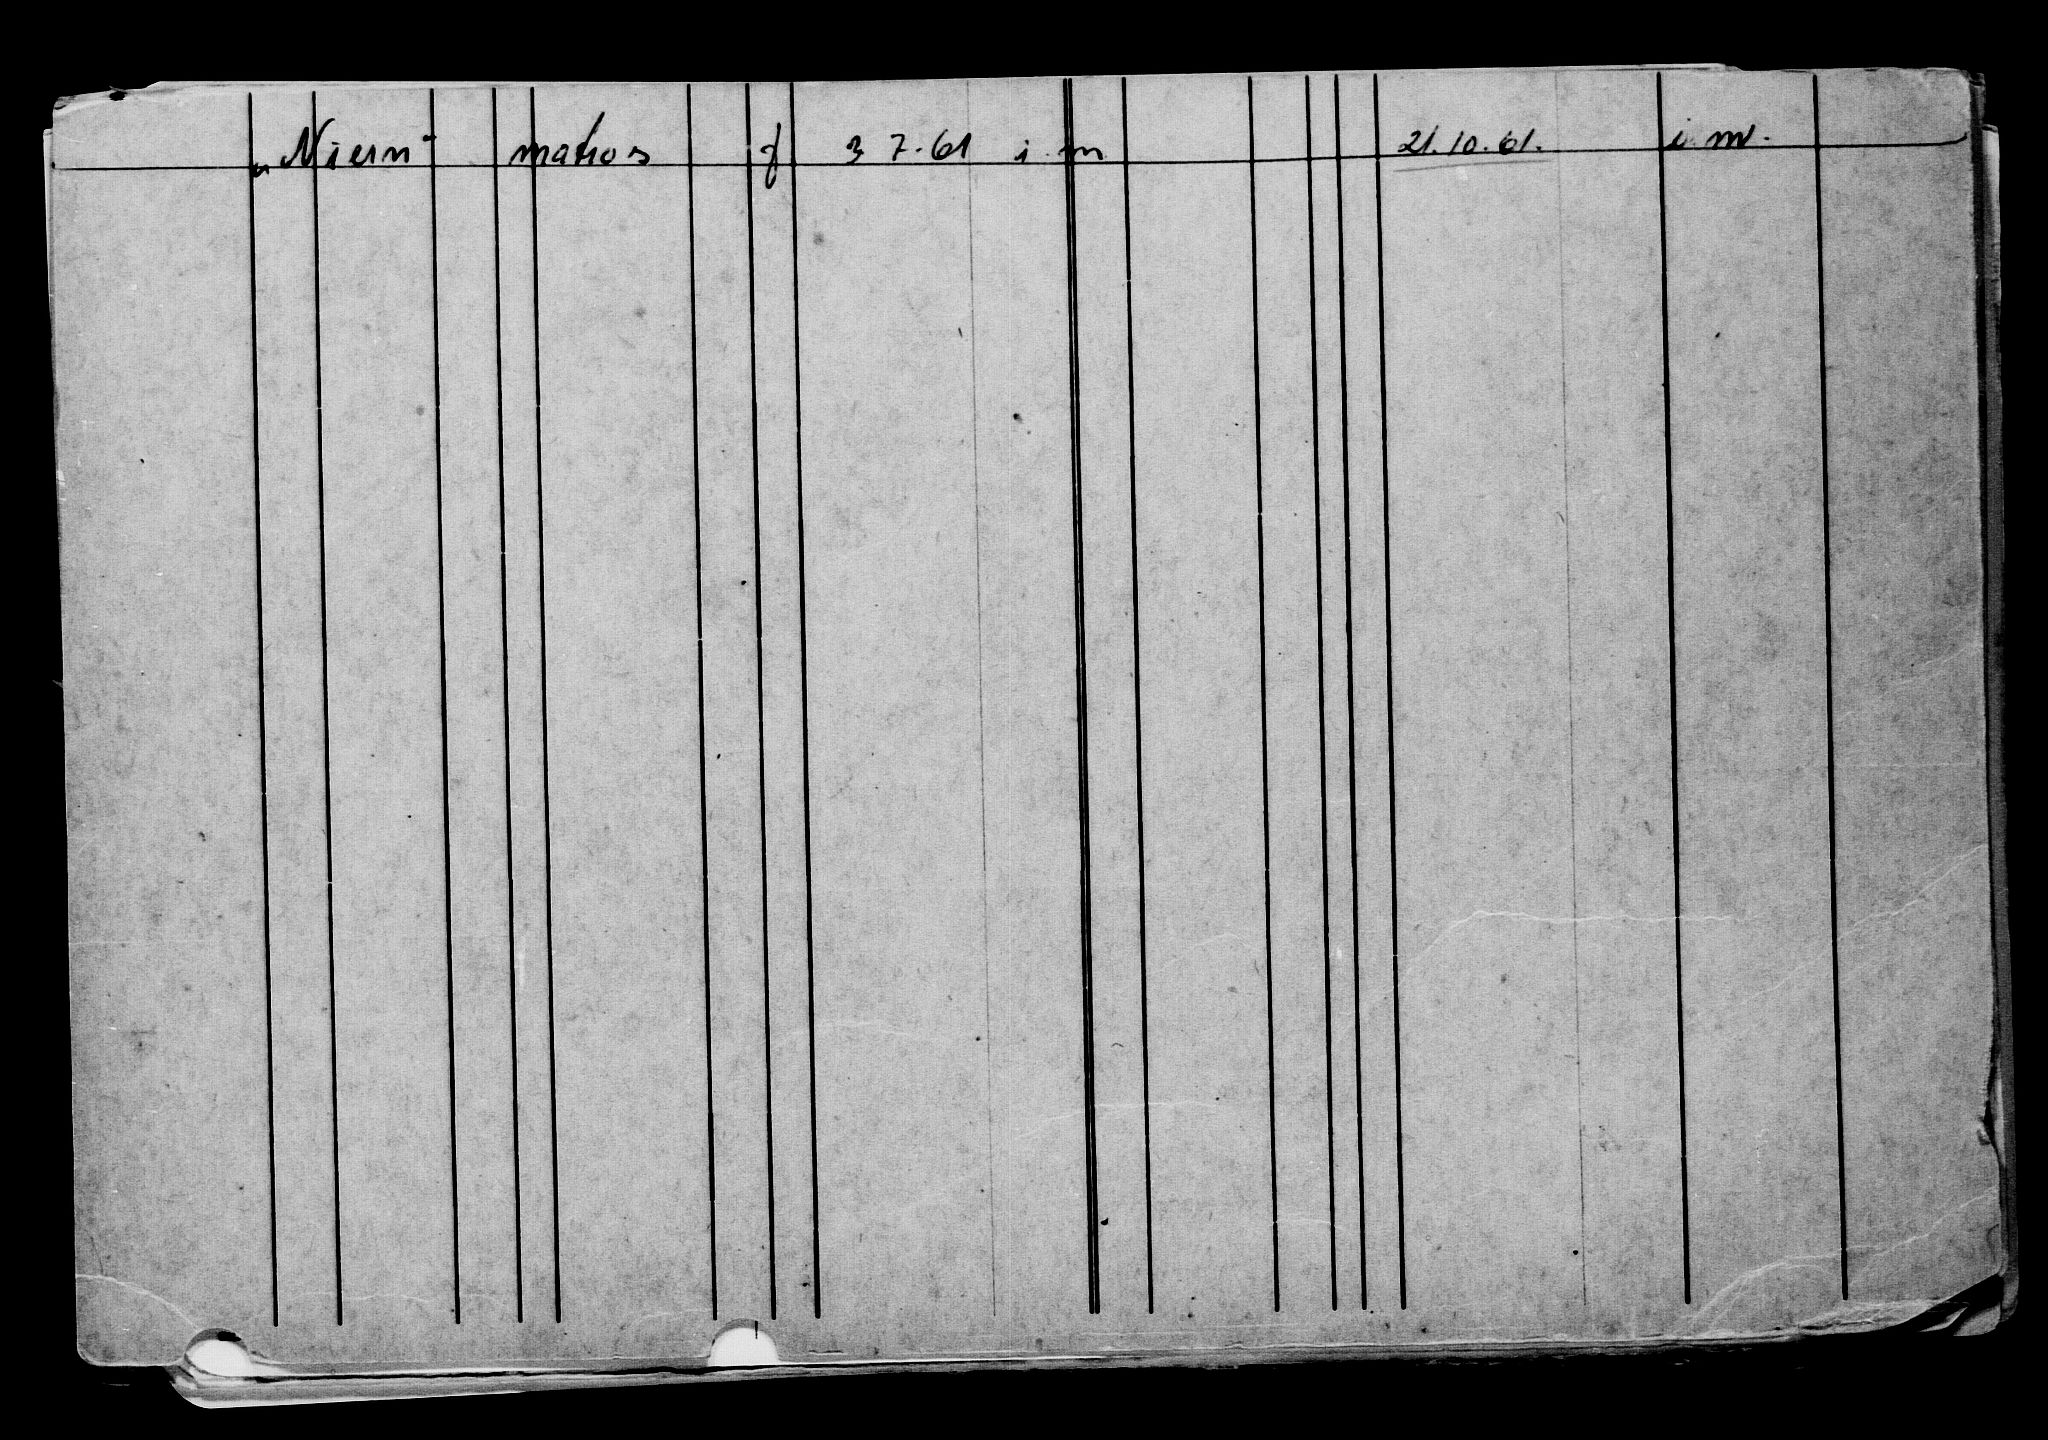 " Niern - matros g 3 7.61 i m 21.10.61. i. m.